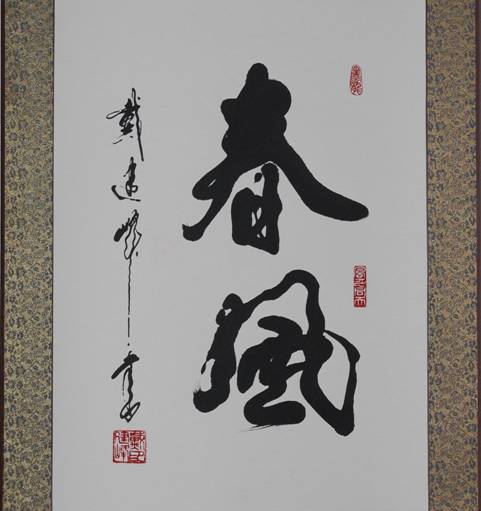 春風
戴建峰書